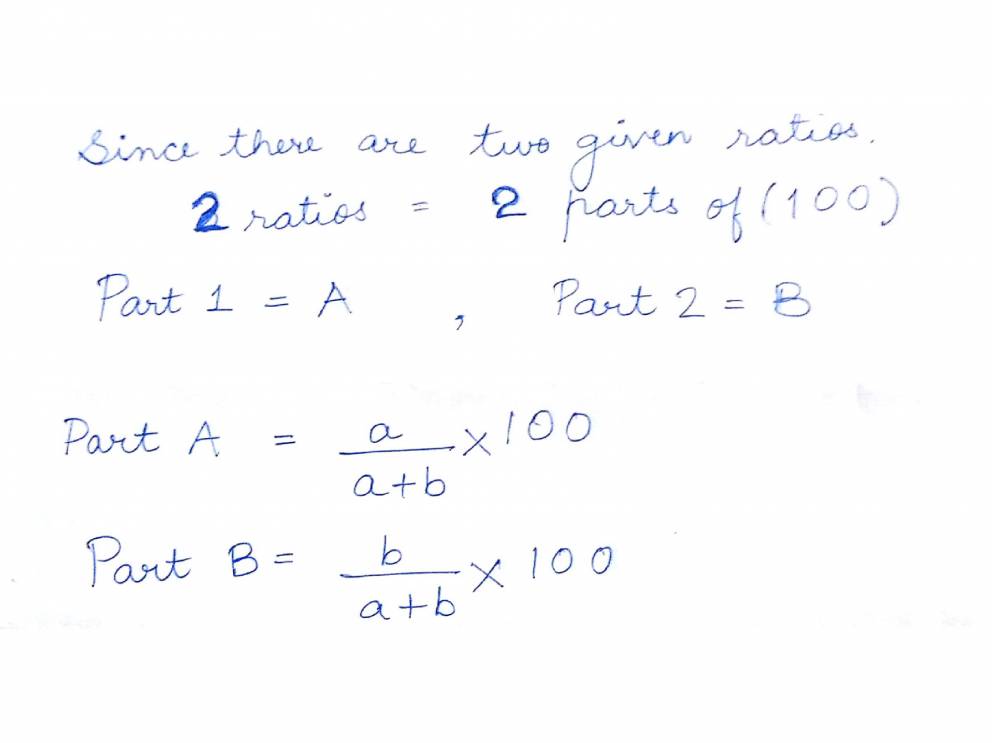 Since there are two given ratios.
2 ratios = 2 parts of (100)
Part 1 = A , Part 2 = B
Part A = a/a+b × 100
Part B = b/a+b × 100